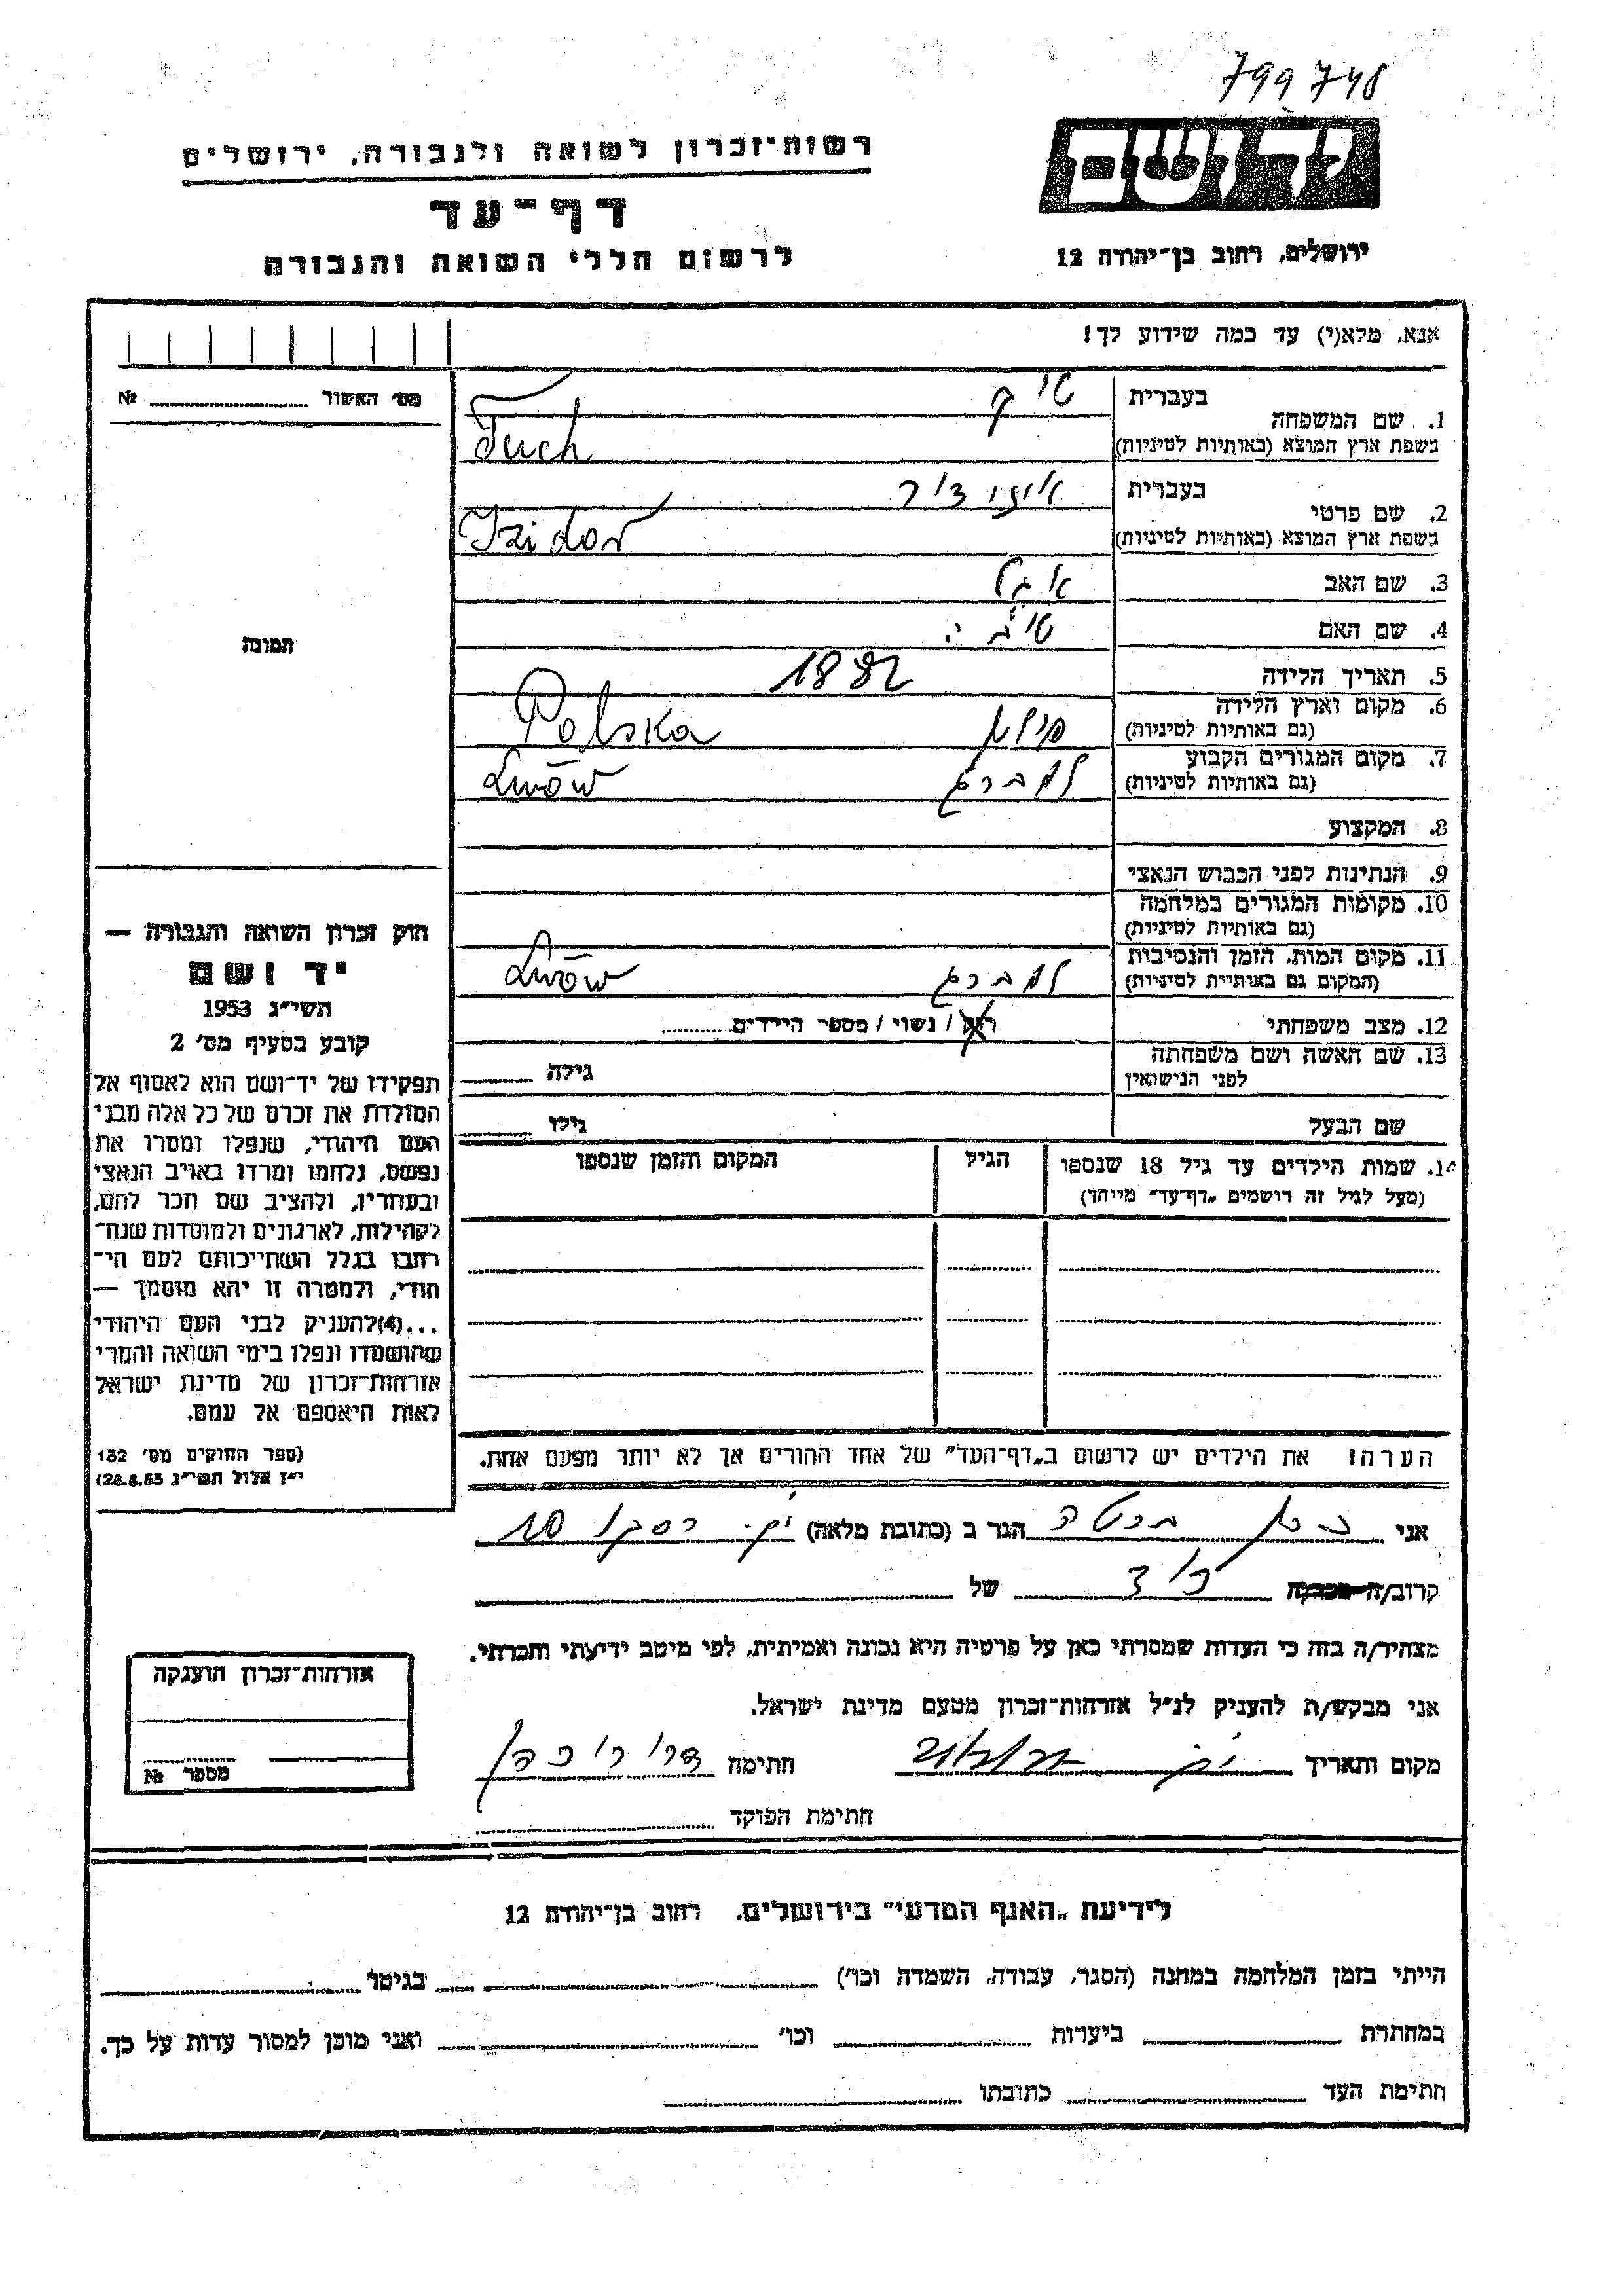 799748
יד ושם
רשות-זכרון לשואה ולגבורה, ירושלים
דף-עד
לרשום חללי השואה והגבורה
ירושלים, רחוב בן-יהודה 12
אנא, מלא(י) עד כמה שידוע לך!
מס׳ האשור № ........
1. שם המשפחה
בעברית טיך
בשפת ארץ המוצא (באותיות לטיניות) Tuch
2. שם פרטי
בעברית איזידור
בשפת ארץ המוצא (באותיות לטיניות) Izidor
3. שם האב
4. שם האם
תמונה
5. תאריך הלידה 1882
6. מקום וארץ הלידה
(גם באותיות לטיניות) פולין Polska
7. מקום המגורים הקבוע
(גם באותיות לטיניות) למברג Lwów
8. המקצוע
9. הנתינות לפני הכבוש הנאצי
10. מקומות המגורים במלחמה
(גם באותיות לטיניות)
11. מקום המות, הזמן והנסיבות
(המקום גם באותיית לטיניות) למברג Lwów
12. מצב משפחתי רווק / נשוי / מספר הילדים ........
13. שם האשה ושם משפחתה
לפני הנישואין גילה
שם הבעל גילו
14. שמות הילדים עד גיל 18 שנספו הגיל המקום והזמן שנספו
(מעל לגיל זה רושמים „דף-עד״ מיוחד)
הערה! את הילדים יש לרשום ב„דף-העד״ של אחד ההורים אך לא יותר מפעם אחת.
חוק זכרון השואה והגבורה —
יד ושם
תשי״ג 1953
קובע בסעיף מס׳ 2
תפקידו של יד-ושם הוא לאסוף אל
המולדת את זכרם של כל אלה מבני
העם היהודי, שנפלו ומסרו את
נפשם, נלחמו ומרדו באויב הנאצי
ובעוזריו, ולהציב שם וזכר להם,
לקהילות, לארגונים ולמוסדות שנח-
רבו בגלל השתייכותם לעם הי-
הודי, ולמטרה זו יהא מוסמך —
...(4)להעניק לבני העם היהודי
שהושמדו ונפלו בימי השואה והמרי
אזרחות-זכרון של מדינת ישראל
לאות היאספם אל עמם.
(ספר החוקים מס׳ 132
י״ז אלול תשי״ג 28.8.53)
אני הגר ב (כתובת מלאה)
קרוב/ה מכר/ה של
מצהיר/ה בזה כי העדות שמסרתי כאן על פרטיה היא נכונה ואמיתית, לפי מיטב ידיעתי והכרתי.
אני מבקש/ת להעניק לנ״ל אזרחות-זכרון מטעם מדינת ישראל.
מקום ותאריך חתימה
חתימת הפוקד
אזרחות-זכרון הוענקה
מספר №
לידיעת „האגף המדעי״ בירושלים, רחוב בן-יהודה 12
הייתי בזמן המלחמה במחנה (הסגר, עבודה, השמדה וכו׳) בגיטו
במחתרת ביערות וכו׳ ואני מוכן למסור עדות על כך.
חתימת העד כתובתו